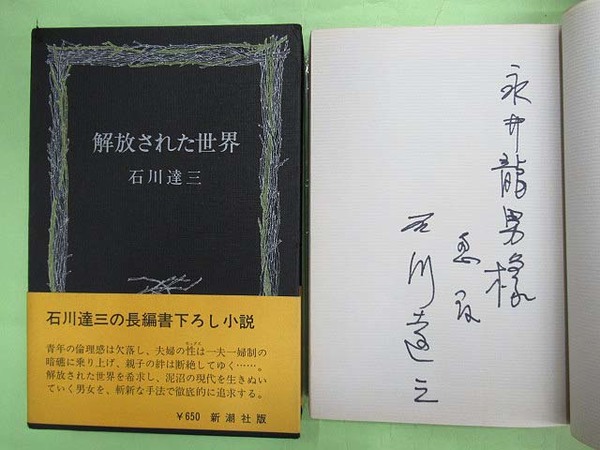 解放された世界
石川達三
石川達三の長編書下ろし小説
青年の倫理感は欠落し、夫婦の性は一夫一婦制の
暗礁に乗り上げ、親子の絆は断絶してゆく……。
解放された世界を希求し、泥沼の現代を生きぬい
ていく男女を、斬新な手法で徹底的に追求する。
¥650 新潮社版
永井龍男様
恵存
石川達三